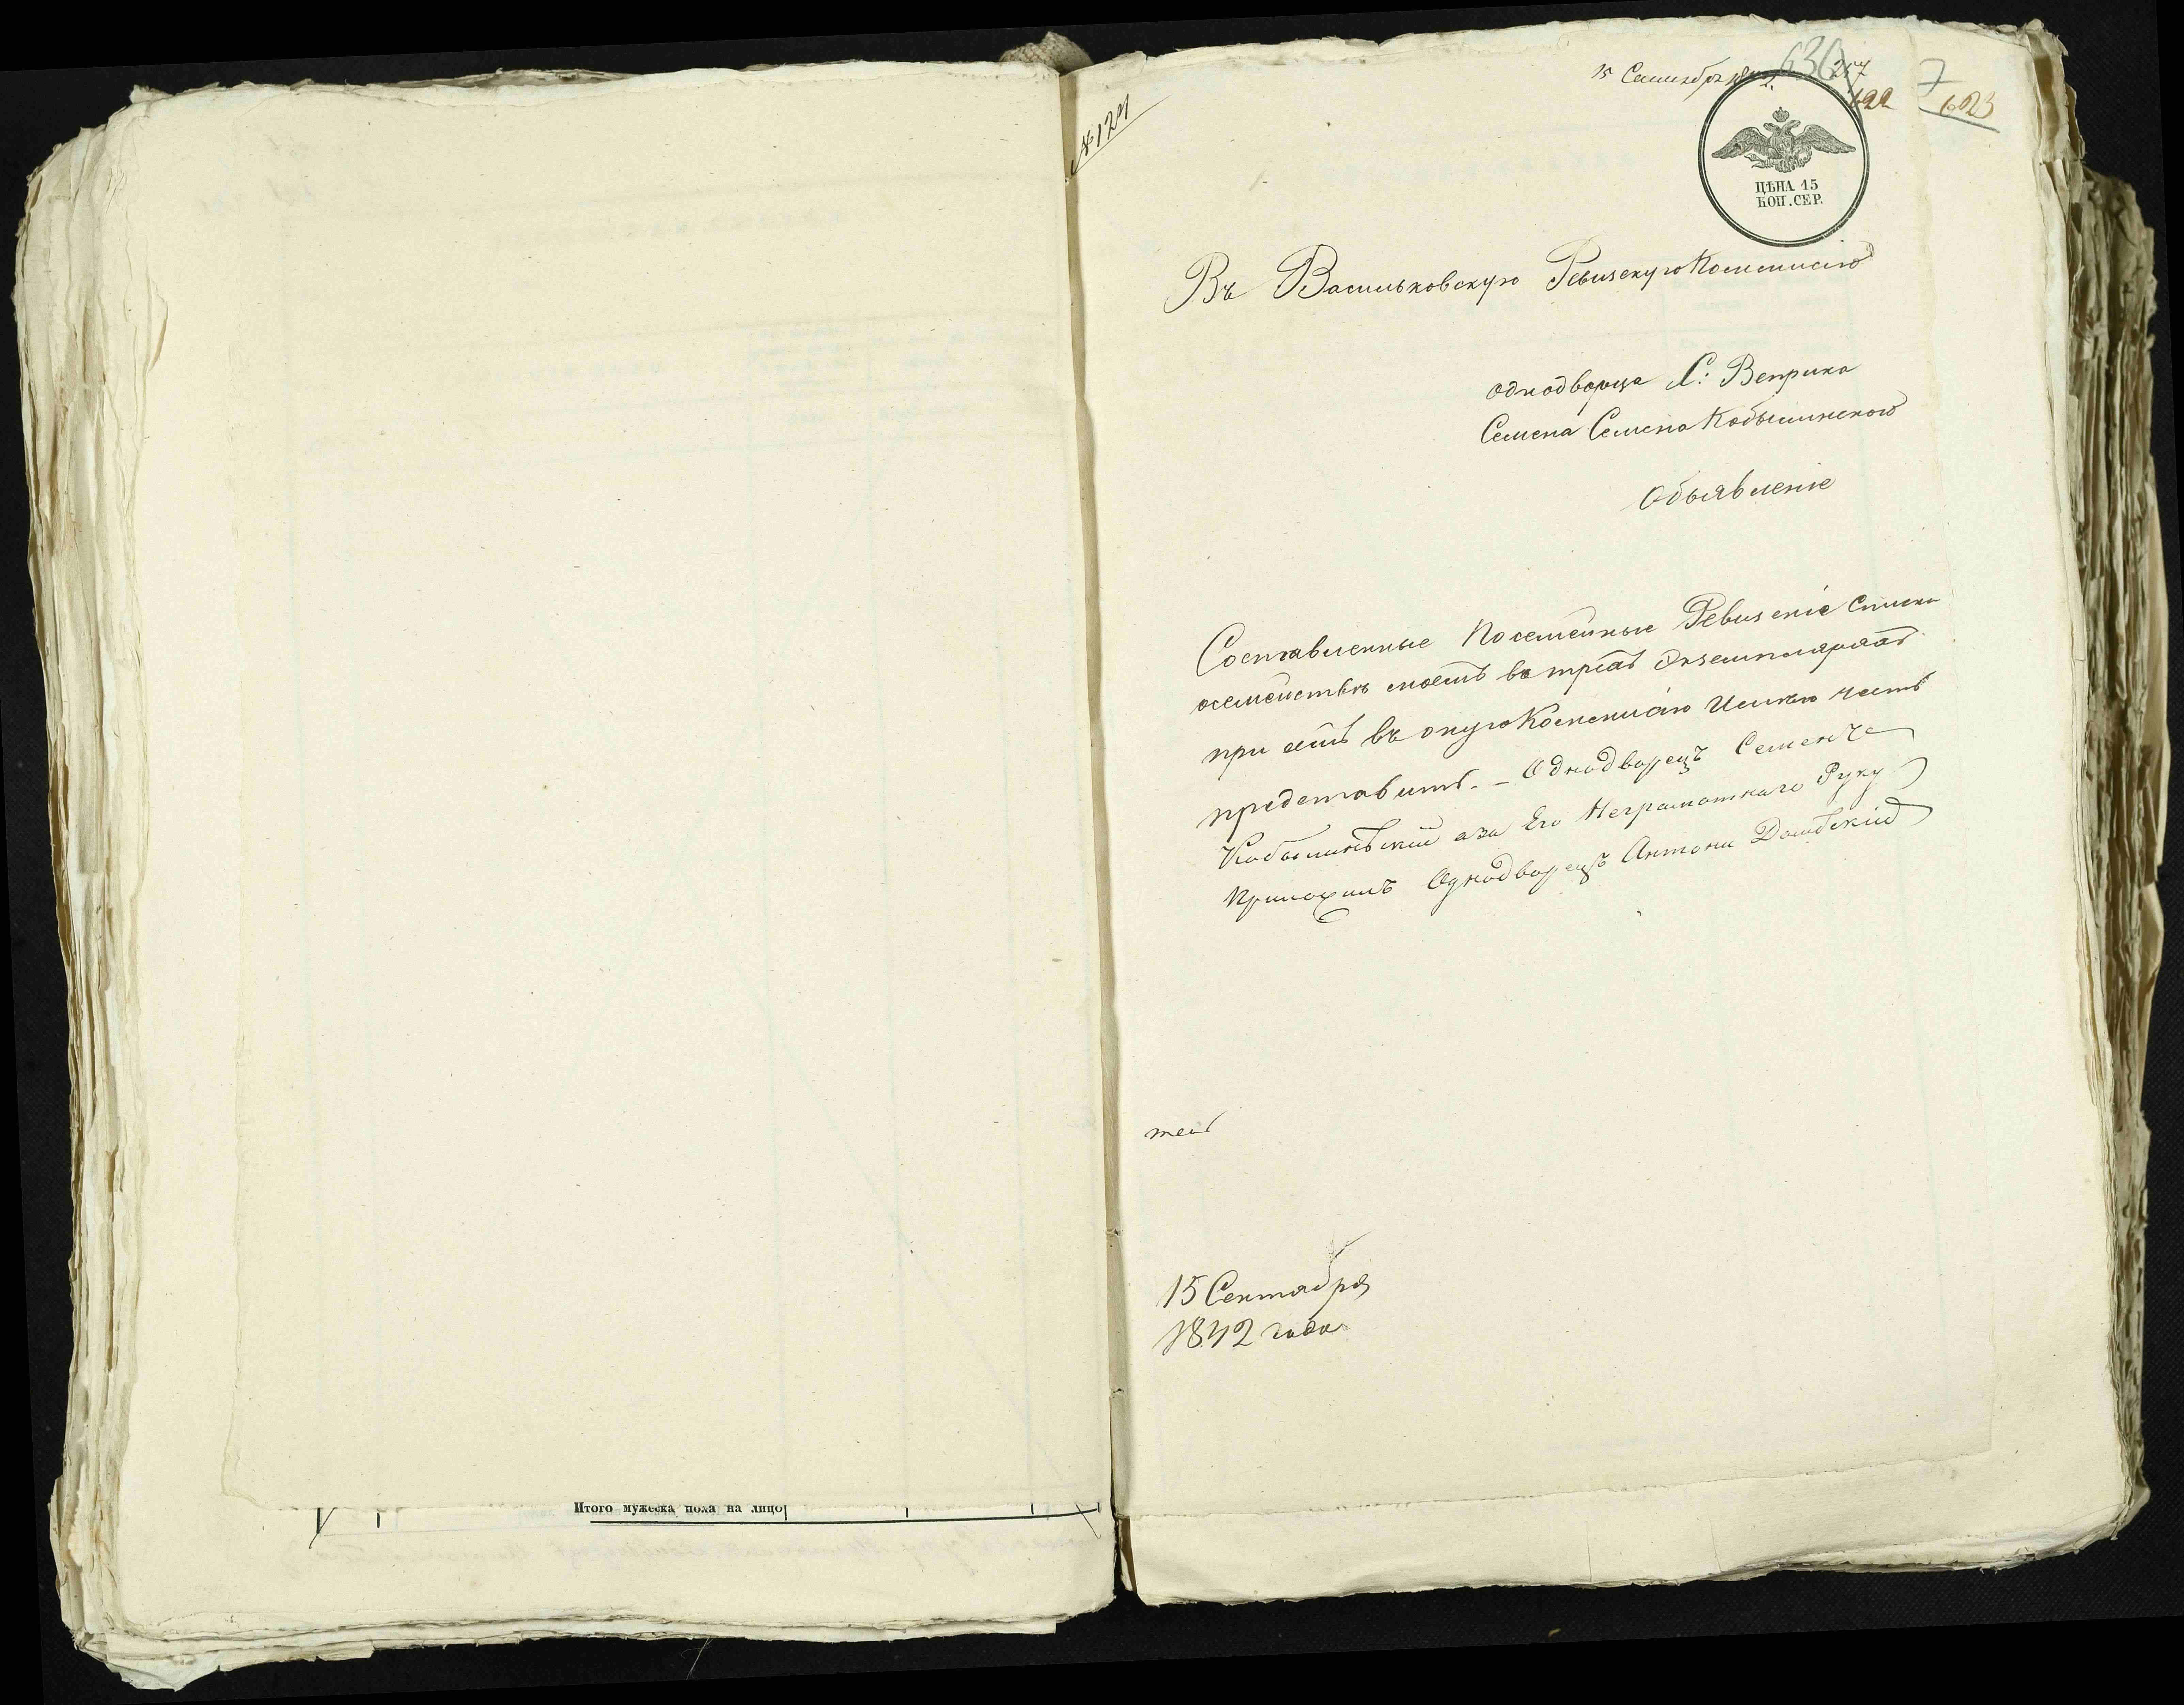 Итого мужеска пола на лицо
№ 124
15 Сентября 1842
636 257
622
7
623
ЦѢНА 15
КОП. СЕР.
Въ Васильковскую Ревизскую Коммисію
Однодворца С: Веприка
Семена Семена Кобылинского
Объявленіе
Составленные Посемейные Ревизскіе Списки
осемействѣ моемъ въ трехъ Экземплярахъ
при семъ въ оную Коммисію Имѣю честь
представить. – Однодворецъ Семенъ
Кобылинскій аза Его Неграмотнаго Руку
Приложилъ Однодворецъ Антони Домбскій
15 Сентября
1842 года